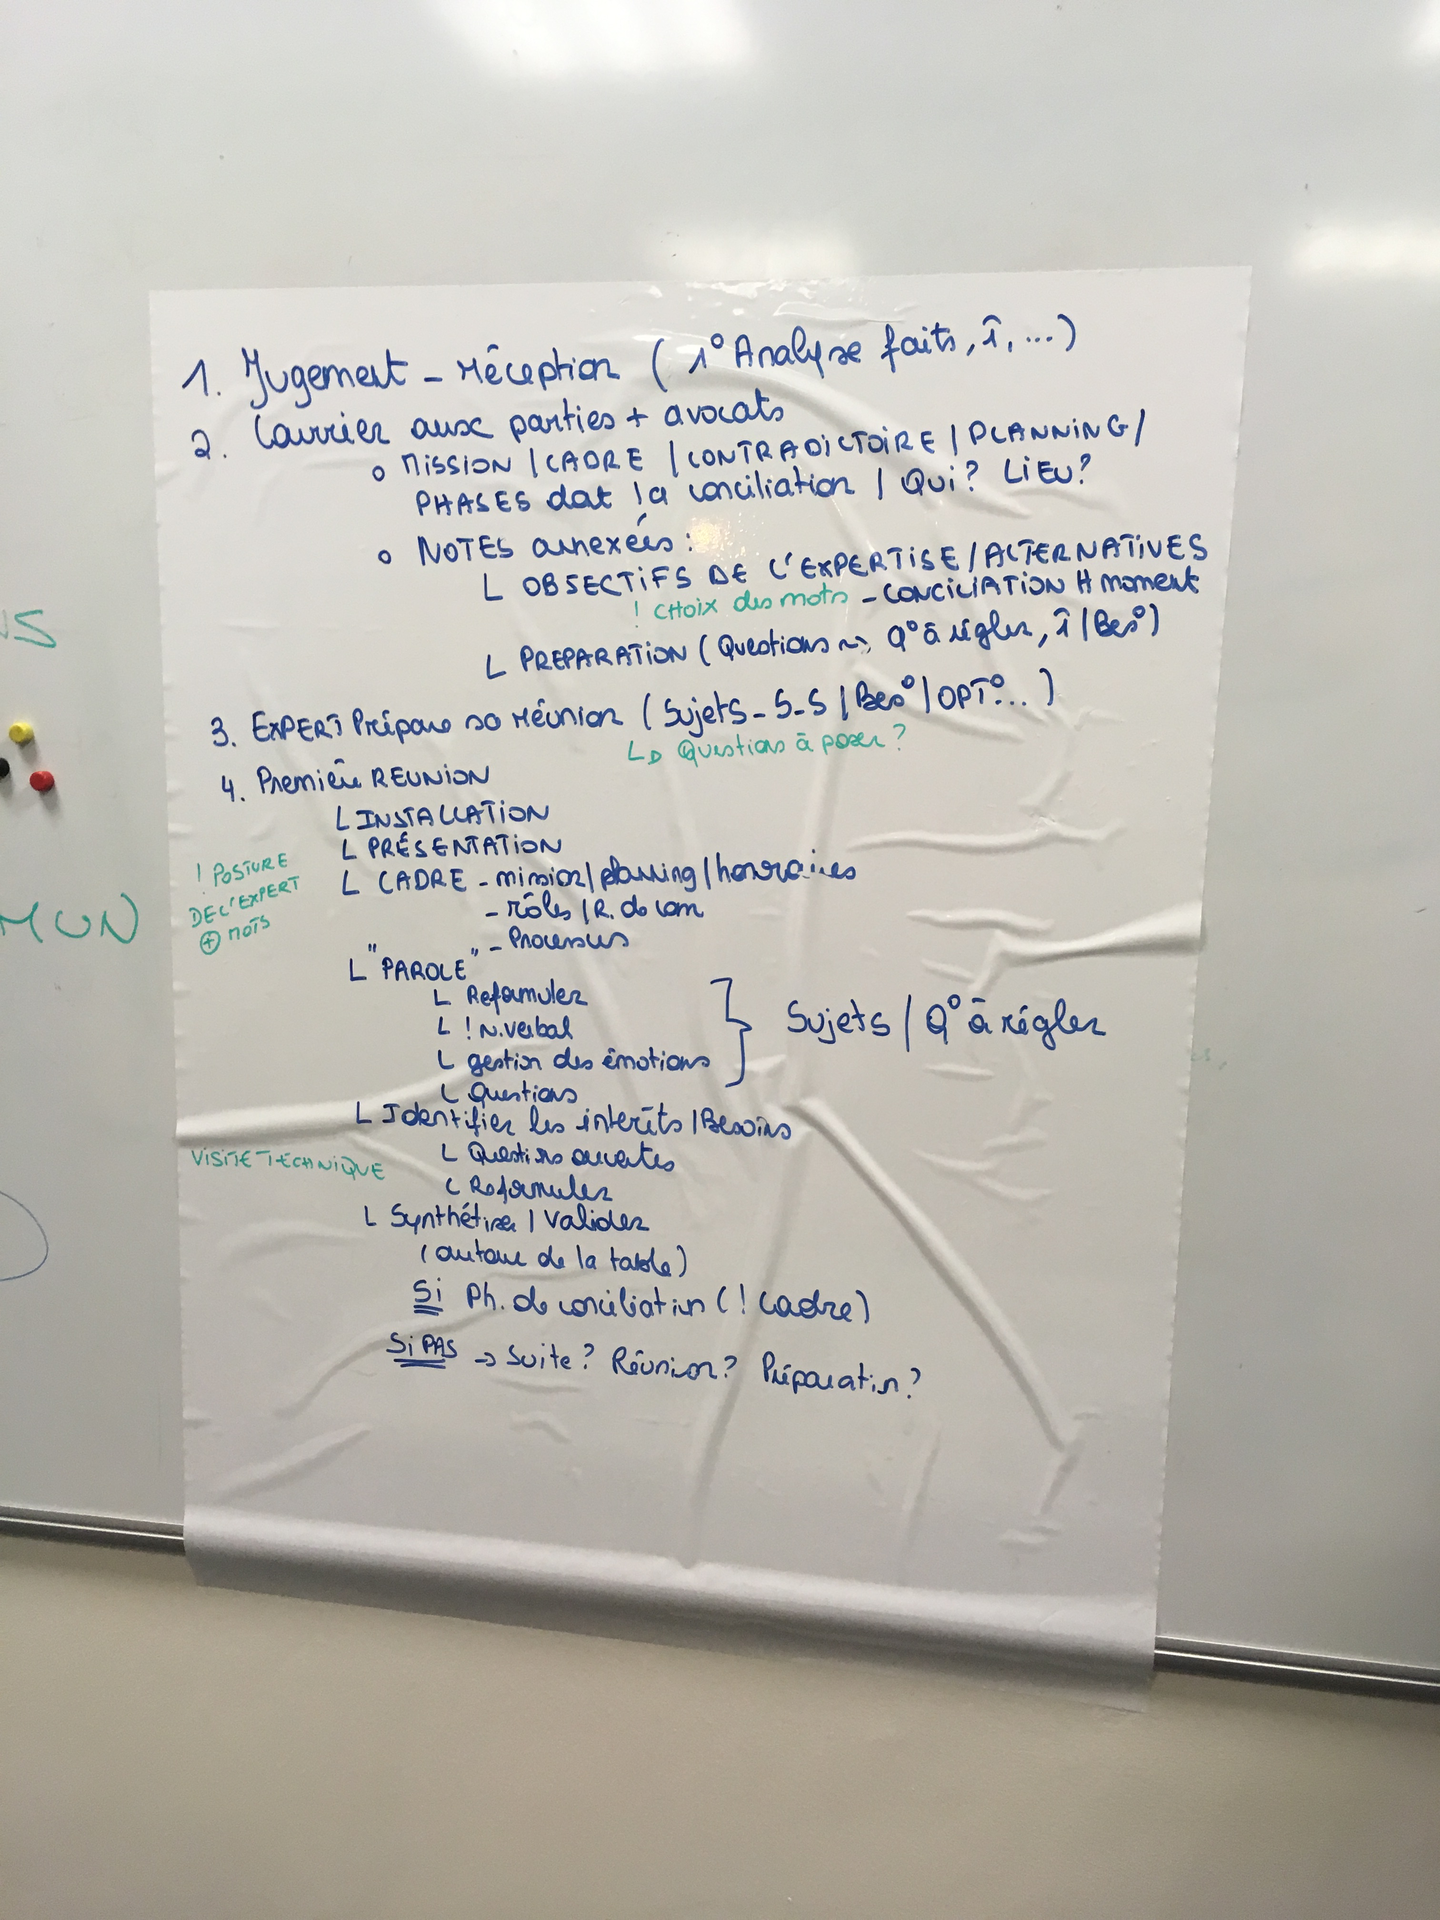 1. Jugement - réception ( 1° Analyse faits, î, ...)
2. Courrier aux parties + avocats
o MISSION / CADRE / CONTRADICTOIRE / PLANNING /
PHASES dat ! a conciliation / Qui? LiEU?
o NOTES annexées :
L OBJECTIFS DE L'EXPERTISE / ALTERNATIVES
! CHOIX des mots - CONCILIATION # moment
L PREPARATION ( Questions ~> Q° à régler, î / Bes°)
3. EXPERT Prépare sa réunion ( Sujets - S-S / Bes° / OPT°... )
L> Questions à poser ?
4. Première REUNION
L INSTALLATION
L PRÉSENTATION
L CADRE - mission / planning / honoraires
- rôles / R. de com
- Processus
! POSTURE
DE L'EXPERT
+ MOTS
L "PAROLE"
L Reformuler
L ! N.verbal
L gestion des émotions
L Questions
} Sujets / Q° à régler
L Identifier les intérêts / Besoins
L Questions ouvertes
L Reformuler
VISITE TECHNIQUE
L Synthétiser / Valider
(autour de la table)
Si Ph. de conciliation ( ! Cadre)
Si PAS -> Suite ? Réunion ? Préparation ?
NS
MUN